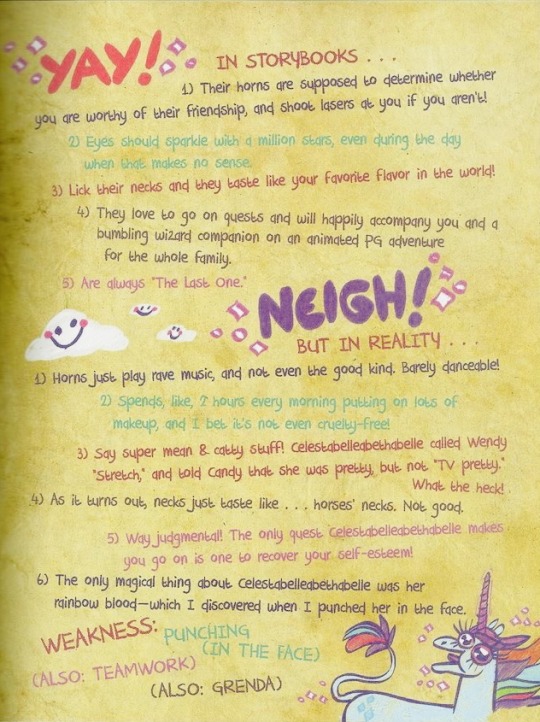 YAY!
IN STORYBOOKS . . .
1) Their horns are supposed to determine whether
you are worthy of their friendship, and shoot lasers at you if you aren't!
2) Eyes should sparkle with a million stars, even during the day
when that makes no sense.
3) Lick their necks and they taste like your favorite flavor in the world!
4) They love to go on quests and will happily accompany you and a
bumbling wizard companion on an animated PG adventure
for the whole family.
5) Are always "The Last One."
NEIGH!
BUT IN REALITY . . .
1) Horns just play rave music, and not even the good kind. Barely danceable!
2) Spends, like, 2 hours every morning putting on lots of
makeup, and I bet it's not even cruelty-free!
3) Say super mean & catty stuff! Celestabelleabethabelle called Wendy
"Stretch," and told Candy that she was pretty, but not "TV pretty."
What the heck!
4) As it turns out, necks just taste like . . . horses' necks. Not good.
5) Way judgmental! The only quest Celestabelleabethabelle makes
you go on is one to recover your self-esteem!
6) The only magical thing about Celestabelleabethabelle was her
rainbow blood—which I discovered when I punched her in the face.
WEAKNESS: PUNCHING
(IN THE FACE)
(ALSO: TEAMWORK)
(ALSO: GRENDA)